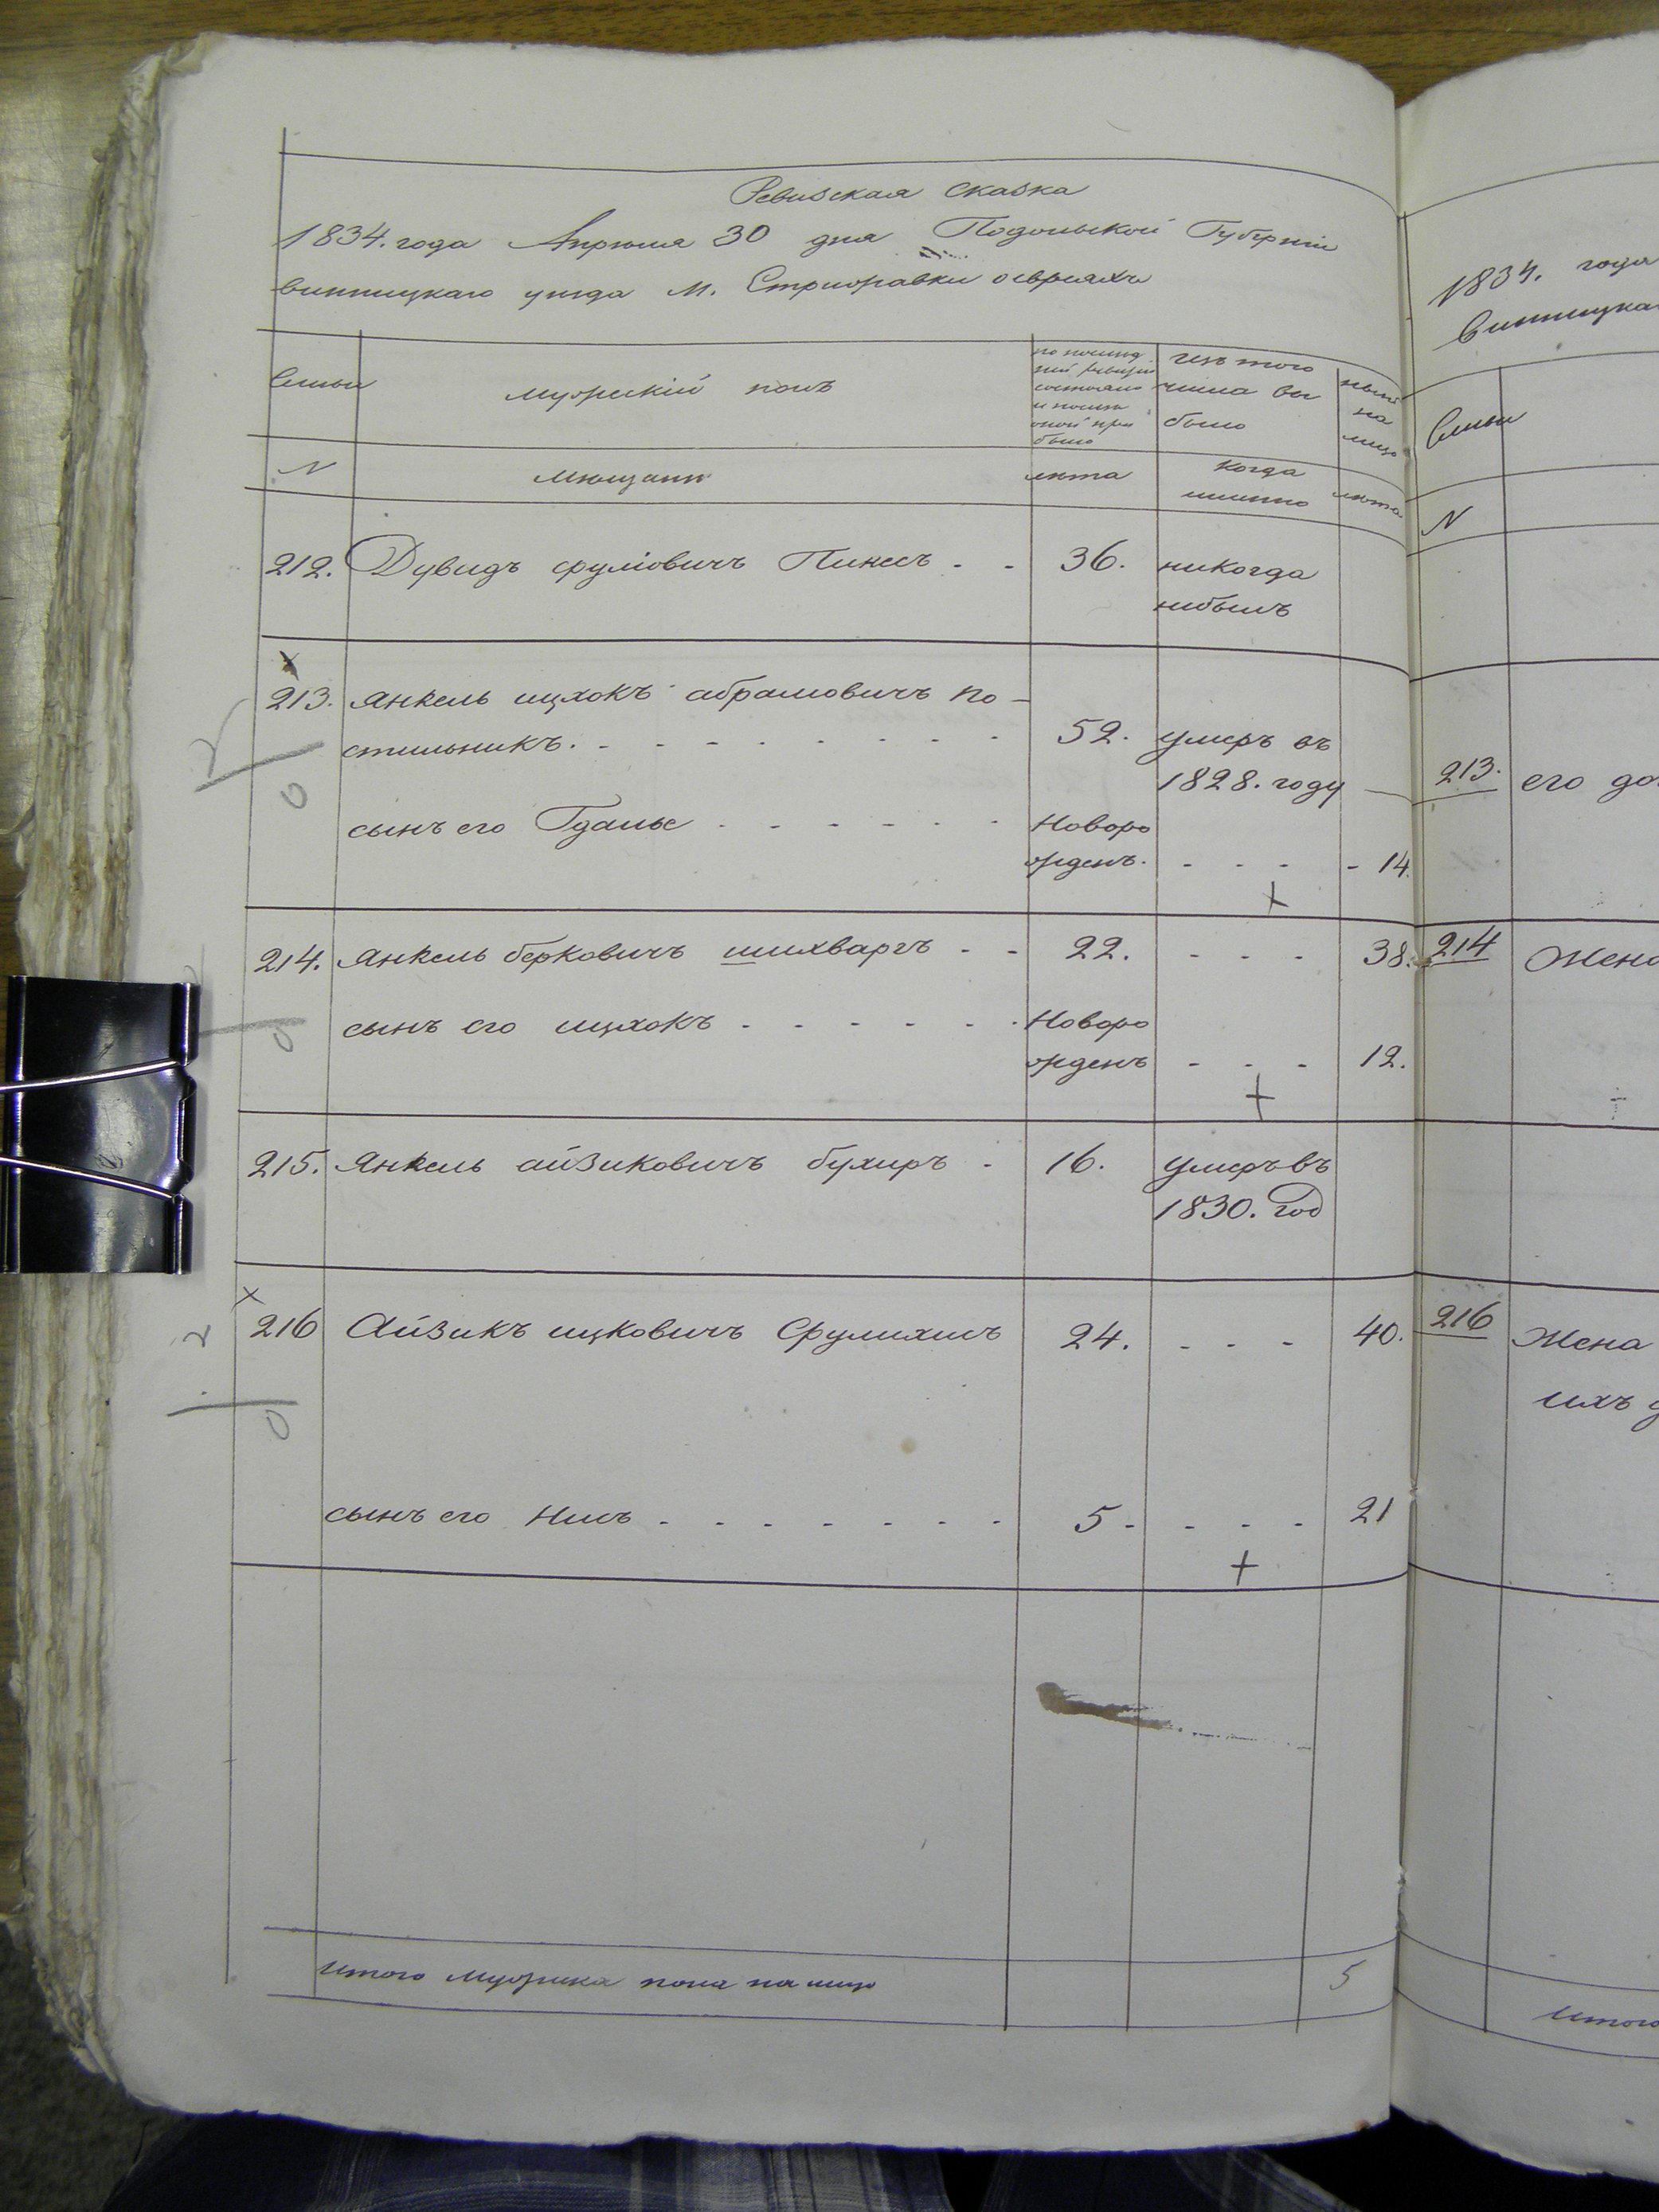 Ревизская сказка
1834. года Апреля 30 дня Подольской Губернии
винницкаго уезда м. Стрижавки о евреяхъ
Семьи мужескій полъ по послед ней ревизии состояло и после оной при было изъ того числа вы было ныне на лицо
N мещане лета когда именно лета
212. Дувидъ срулювичъ Пинесъ - - 36. никогда
небылъ
213. янкель ицхокъ абрамовичъ по-
стильникъ. - - - - - - - - 52. умеръ въ
1828. году
сынъ его Гдалье - - - - - - Новоро
жденъ. - - - - 14.
214. янкель берковичъ шихваргъ - - 22. - - - 38.
сынъ его ицхокъ - - - - - - Новоро
жденъ - - - 12.
215. янкель айзиковичъ бухиръ - 16. умеръ въ
1830. год
216 Айзикъ ицковичъ Срулихисъ 24. - - - 40.
сынъ его Нисъ - - - - - - - 5 - - - - 21
итого мужеска пола на лицо 5
1834. года
Винницка
Семьи
N
213. его до
214 Жена
216 Жена
ихъ
Итого